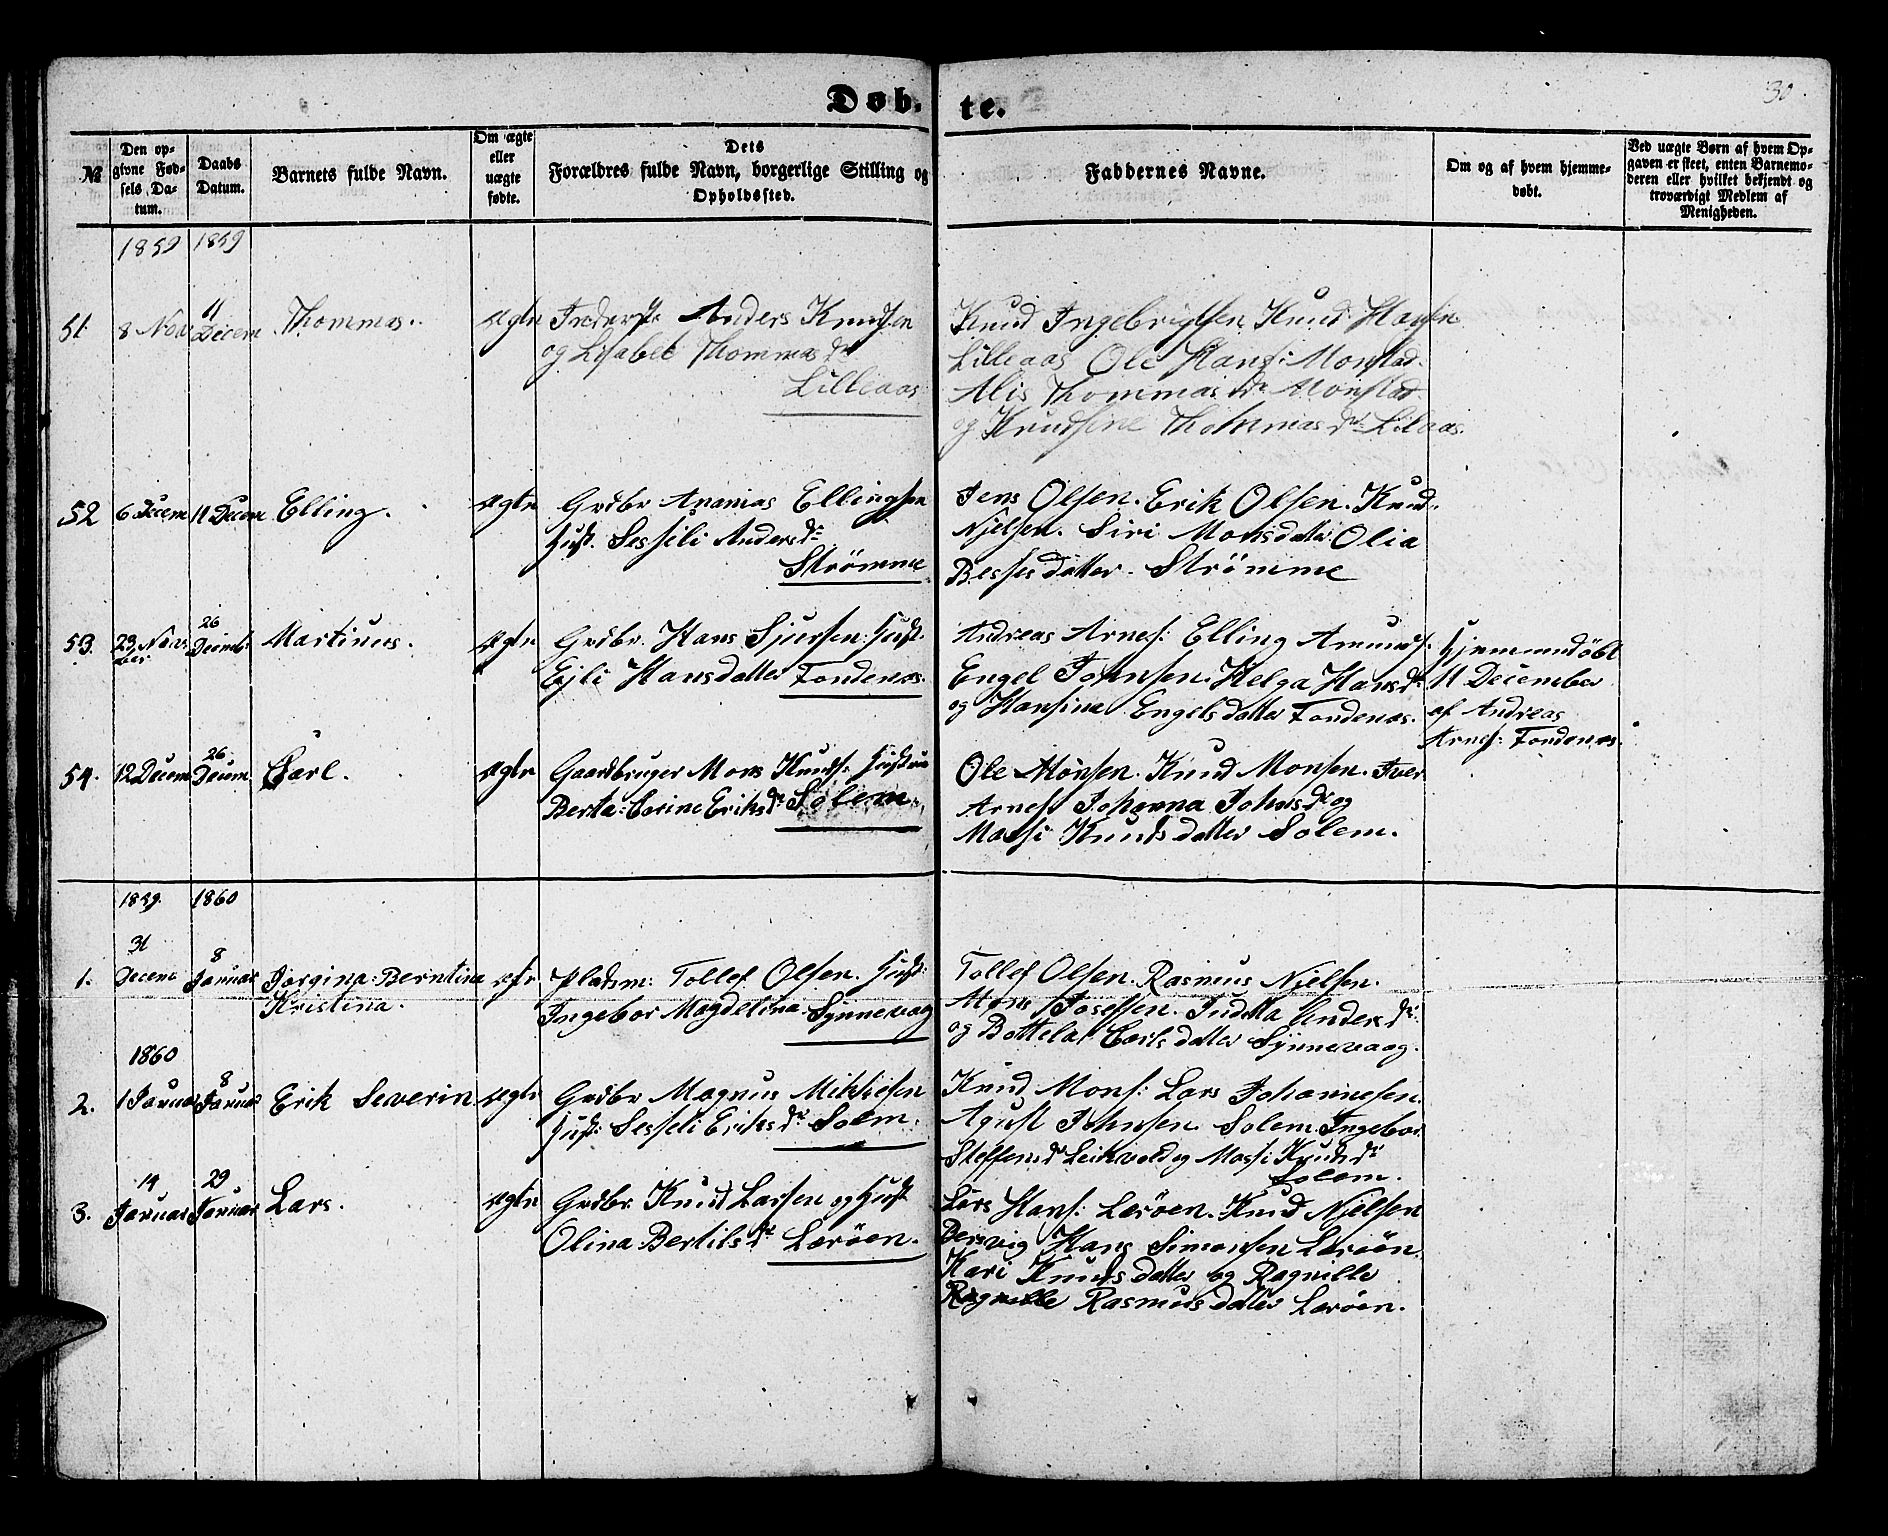 Døb. te.
30.
№
Den opgivne Fødsels Datum.
Daabs Datum.
Barnets fulde Navn.
Om ægte eller uægte fødte.
Dets Forældres fulde Navn, borgerlige Stilling og Opholdssted.
Faddernes Navne.
Om og af hvem hjemmedøbt.
Ved uægte Børn af hvem Opgaven er skeet, enten Barnemoderen eller hvilket bekjendt og troværdigt Medlem af Menigheden.
1859 1859
51. 8 Nov 11 Decem Thommas.
Anders Knudsen
og Lisabet Thommas dr
Lilleaas
Knud Ingebrigtsen Knud Hansen
Lilleaas Ole Hans: Monstad.
Alis Thommas dr Monstad
og Knudsine Thommas dr Lilaas.
52 6 Decem 11 Decem Elling.
Grdbr Ananias Ellingsen
Hust. Sesseli Anders dr
Strømme
Jens Olsen. Erik Olsen. Knud
Njelsen. Siri Monsdatter Olia
Besses datter. Strømme
53. 23 November 26 Decemb Martinus.
Grdbr. Hans Sjursen: Hust:
Ejli Hansdatter Fondenæs.
Andreas Arnes: Elling Amunds:
Engel Johnsen. Helga Hans dr
og Hansina Engelsdatter Fondenæs.
Hjemmedøbt
11 December
af Andreas
Arnes: Fondenæs.
54. 12 Decem 26 Decem Carl.
Gaardbruger Mons Knuds: Hustru
Berta: Corine Eriks dr Solem
Ole Monsen. Knud Monsen. Iver
Arnes: Johanna Johns dr og
Massi Knuds datter Solem.
1859. 1860
1. 31 Decem 8 Januar Jorgina: Berntina
Kristina.
Pladsm: Tollef Olsen. Hust:
Ingebor Magdelina Synnevaag
Tollef Olsen. Rasmus Njelsen.
Mons Josefsen. Anders dr
og Bottela Carls datter Synnevaag.
1860
2. 1 Januar 8 Januar Erik Severin
Grdbr Magnus Mikkelsen
Hust: Sesseli Eriks dr Solem.
Knud Mons: Lars Johannesen
Agust Johnsen. Solem. Ingebor
Steffens dr og Massi Knuds dr
Solem.
3. 14 Januar 29 Januar Lars.
Grdbr. Knud Larsen og Hust
Olina Bertils dr Lerøen.
Lars Hans: Lerøen. Knud Njelsen
Bersvig Hans Simonsen Lerøen.
Kari Knuds datter og Ragnille
Ragnille Rasmus datter Lerøen.